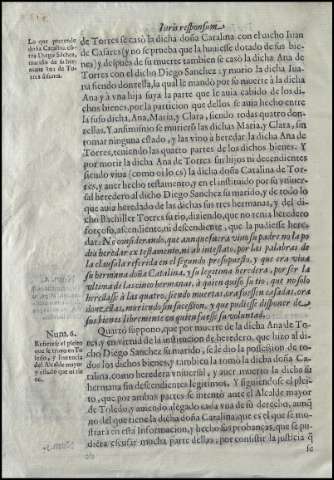 Iuris responsum
Lo que pretende
doña Catalina cõ-
tra Diego Sãchez,
marido de su her-
mana Ana de To-
rres difunta.
de Torres se casò la dicha doña Catalina con el dicho Iuan
de Casares (y no se prueba que la huuiesse dotado de sus bie-
nes) y despues de su muerte tambien se casò la dicha Ana de
Torres con el dicho Diego Sanchez: y murio la dicha Iua-
na siendo donzella, la qual le mandò por su muerte a la dicha
Ana y à vna hija suya la parte que le auia cabido de los di-
chos bienes, por la particion que dellos se auia hecho entre
la susodicha, Ana, Maria, y Clara, siendo todas quatro don-
zellas. Y ansimismo se murierõ las dichas Maria, y Clara, sin
tomar ninguna estado, y las vino à heredar la dicha Ana de
Torres, teniendo las quatro partes de los dichos bienes. Y
por morir la dicha Ana de Torres sin hijos ni decendientes
siendo viua (como oy lo es) la dicha doña Catalina de Tor-
res, y auer hecho testamento, y en el instituido por su vniuer-
sal heredero al dicho Diego Sanchez su marido, y de todo lo
que auia heredado de las dichas sus tres hermanas, y del di-
cho Bachiller Torres su tio, diziendo, que no tenia heredero
forçoso, ascendiente, ni descendiente, que la pudiesse here-
dar: No considerando, que aunque fuera viuo su padre no la po
dia heredar ex testamento, ni ab intestato, por las palabras de
la clausula referida en el segundo presupuesto, y que era viua
su hermana doña Catalina, y su legitima heredera, por ser la
vltima de las cinco hermanas, à quien quiso su tio, que no solo
heredasse à las quatro, siendo muertas, ora fuessen casadas, ora
donzellas, muriendo sin sucession, y que pudiesse disponer de
sus bienes libremente en quien fuesse su voluntad.
Num. 6.
Refierese el pleito
que se trató en To-
ledo, y sentencia
del Alcalde mayor
y estado que oi tie
ne.
Quarto suppono, que por muerte de la dicha Ana de To-
rres, y en virtud de la institucion de heredero, que hizo al di-
cho Diego Sanchez su marido, se le dio la possession de to-
dos los dichos bienes, y tambien la tomò la dicha doña Ca-
talina, como heredera vniuersal, y auer muerto la dicha su
hermana sin descendientes legitimos. Y siguiendose el plei-
to, que por ambas partes se intentò ante el Alcalde mayor
de Toledo, y auiendo alegado cada vna de su derecho, aunq̃
no del que tiene la dicha doña Catalina, que es el que se mo-
strarà en esta Informacion, y hecho sus probanças, que se pu-
diera escusar mucha parte dellas, por consistir la justicia q̃
se